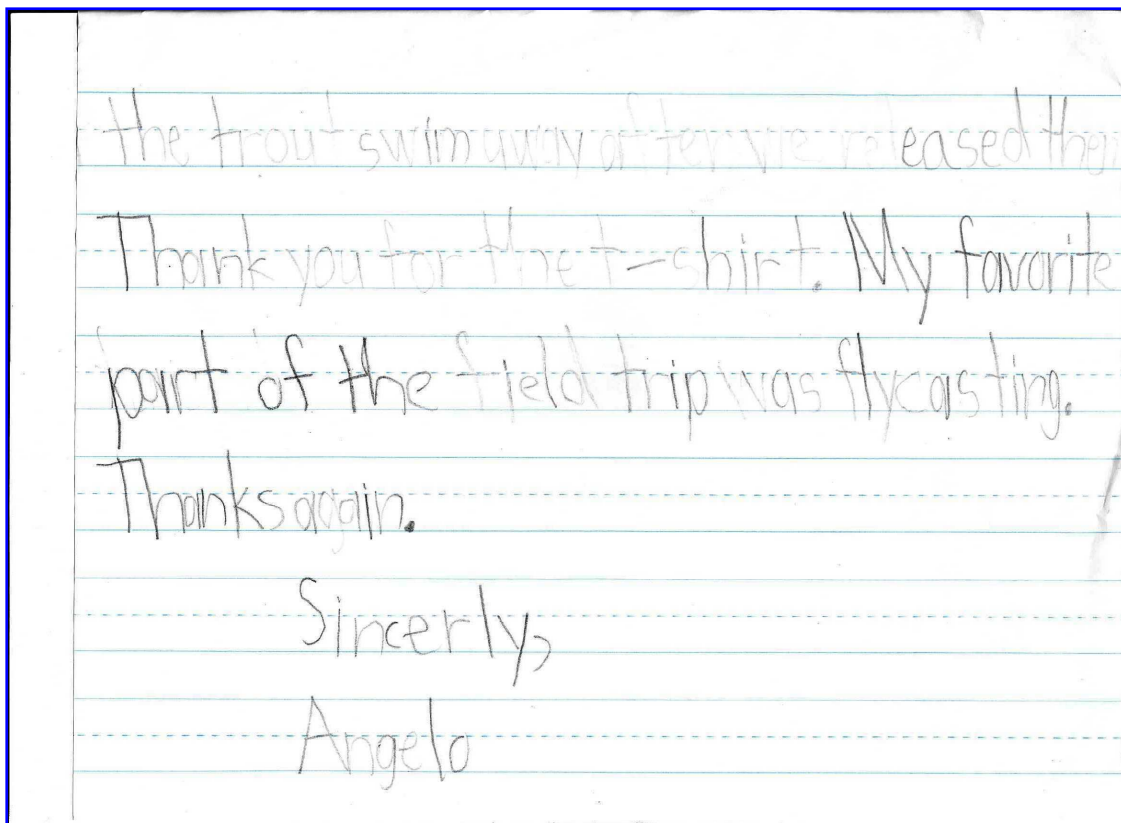 the trout swim away after we released them
Thank you for the t-shirt. My favorite
part of the field trip was flycasting.
Thanks again.
Sincerly,
Angelo